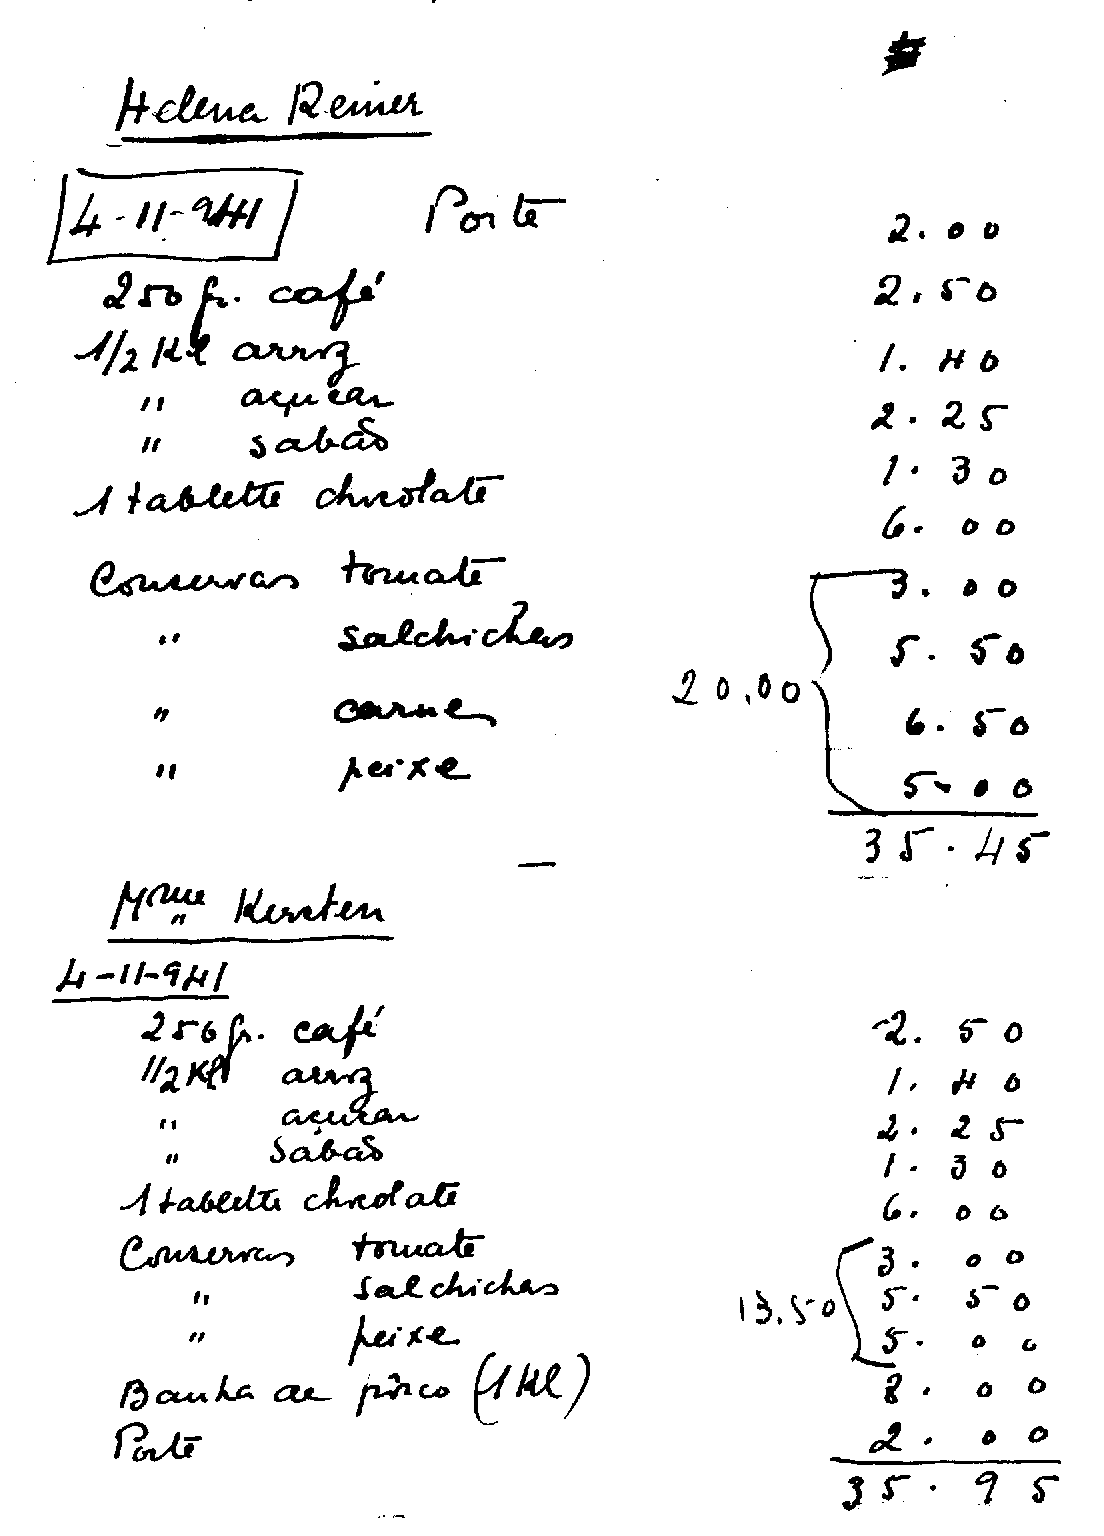 Helena Reiner
4-11-941 Porte 2.00
250 gr. café 2.50
1/2 Kl arroz 1.40
" açucar 2.25
" sabão 1.30
1 tablette chocolate 6.00
Conservas tomate 3.00
" salchichas 5.50
20.00
" carne 6.50
" peixe 5.00
35.45
Mme Kersten
4-11-941
250 gr. café 2.50
1/2 Kl arroz 1.40
" açucar 2.25
" Sabão 1.30
1 tablette chocolate 6.00
Conservas tomate 3.00
" salchichas 5.50
13.50
" peixe 5.00
Banha de pôrco (1 Kl) 8.00
Porte 2.00
35.95